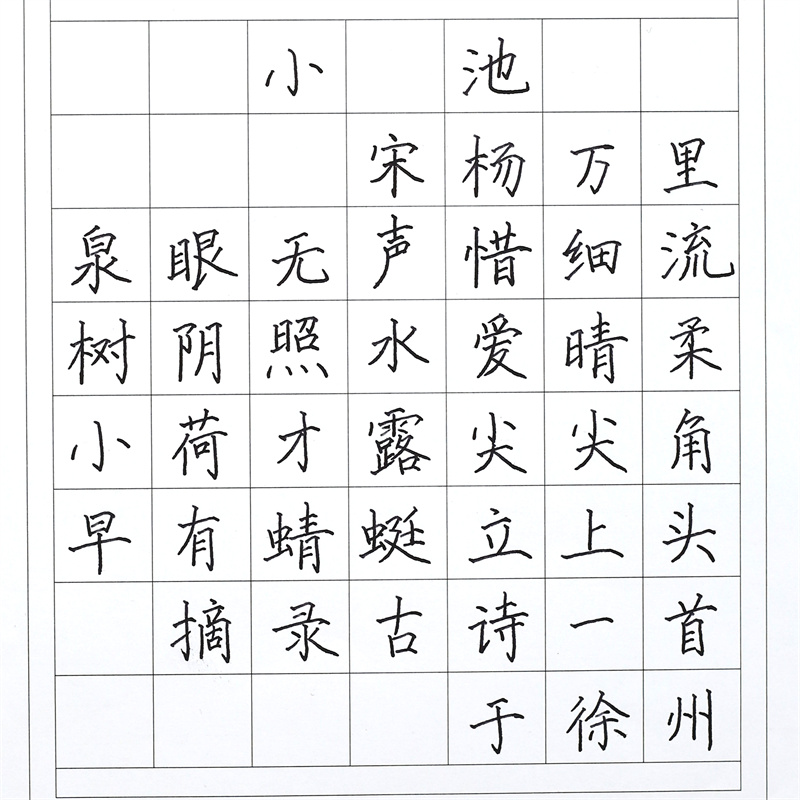 小池
宋杨万里
泉眼无声惜细流
树阴照水爱晴柔
小荷才露尖尖角
早有蜻蜓立上头
摘录古诗一首
于徐州